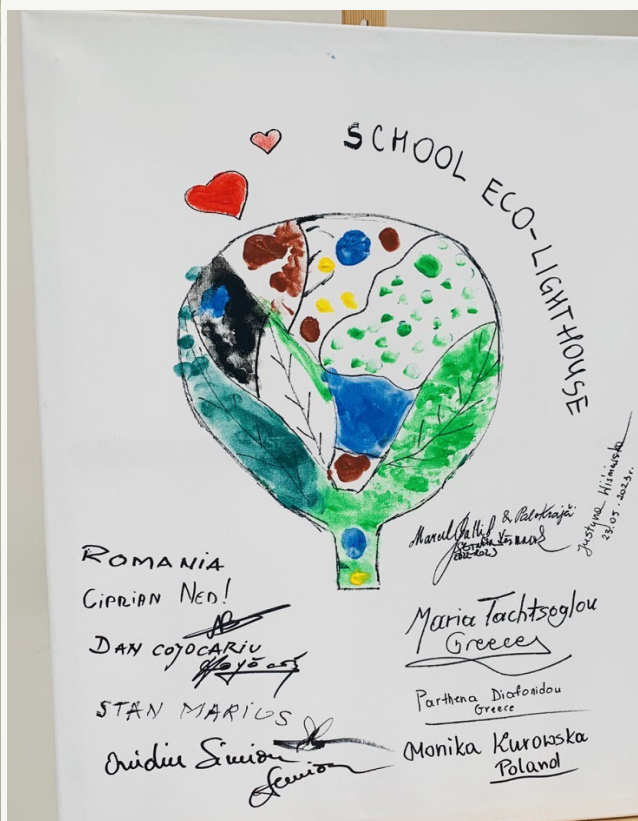 SCHOOL ECO-LIGHTHOUSE
Justyna
23.05.2023r.
Marcel & Palo Krajči
2022-2023
ROMANIA
CIPRIAN NED!
DAN COJOCARIU
STAN MARIUS
Ovidiu Simion
Simion
Maria Tachtsoglou
Greece
Parthena Diafonidou
Greece
Monika Kurowska
Poland